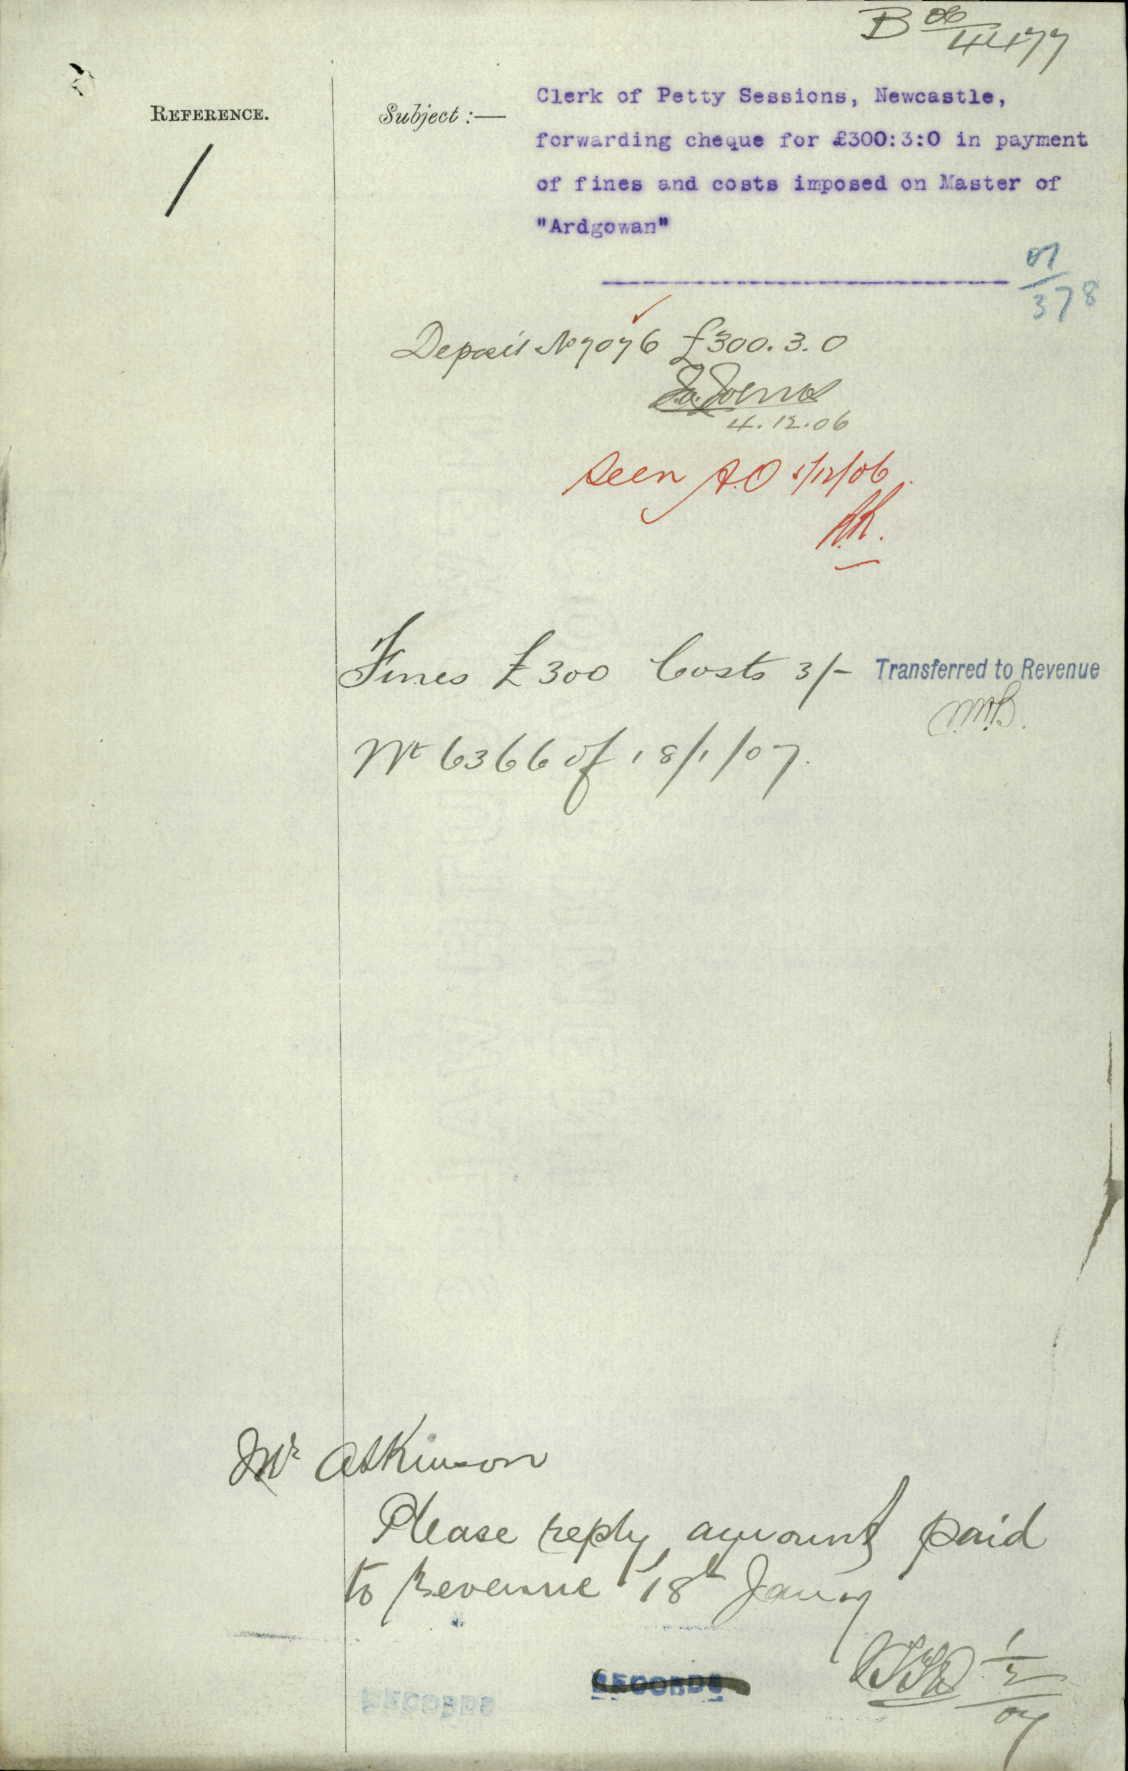 B 06/4477
REFERENCE.
Subject :—
Clerk of Petty Sessions, Newcastle,
forwarding cheque for £300:3:0 in payment
of fines and costs imposed on Master of
"Ardgowan"
07/378
Deposit No 7076 £300.3.0
4.12.06
Seen A.O 5/12/06
Fines £300 Costs 3/-
Transferred to Revenue
Wt 6366 of 18/1/07.
Mr Atkinson
Please reply amount paid
to Revenue 18th Jany
1/2/07
RECORDS
RECORDS